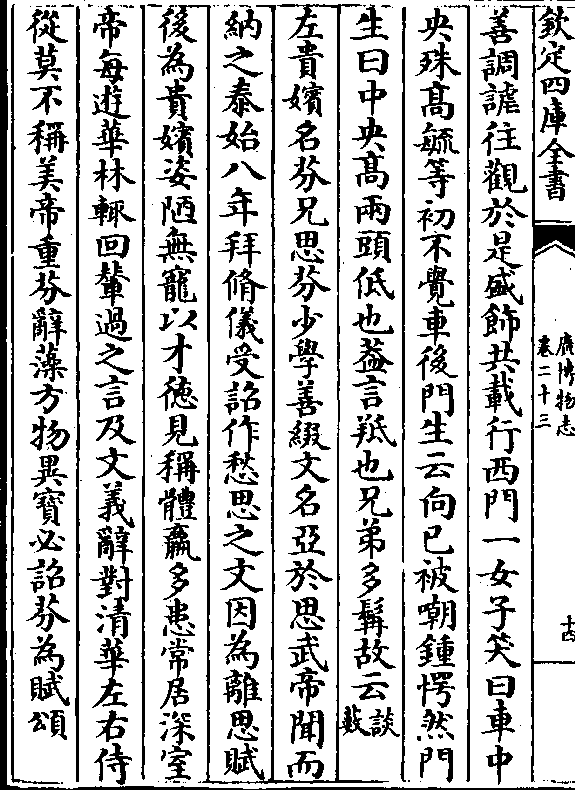 欽定四庫全書
廣博物志
卷二十三
十四
善調謔往觀於是盛飾共載行西門一女子笑曰車中
央殊高毓等初不覺車後門生云向已被嘲鍾愕然門
生曰中央高兩頭低也葢言羝也兄弟多髯故云談藪
左貴嬪名芬兄思芬少學善綴文名亞於思武帝聞而
納之泰始八年拜脩儀受詔作愁思之文因為離思賦
後為貴嬪姿陋無寵以才徳見稱體羸多患常居深室
帝每遊華林輒回輦過之言及文義辭對清華左右侍
從莫不稱美帝重芬辭藻方物異寳必詔芬為賦頌